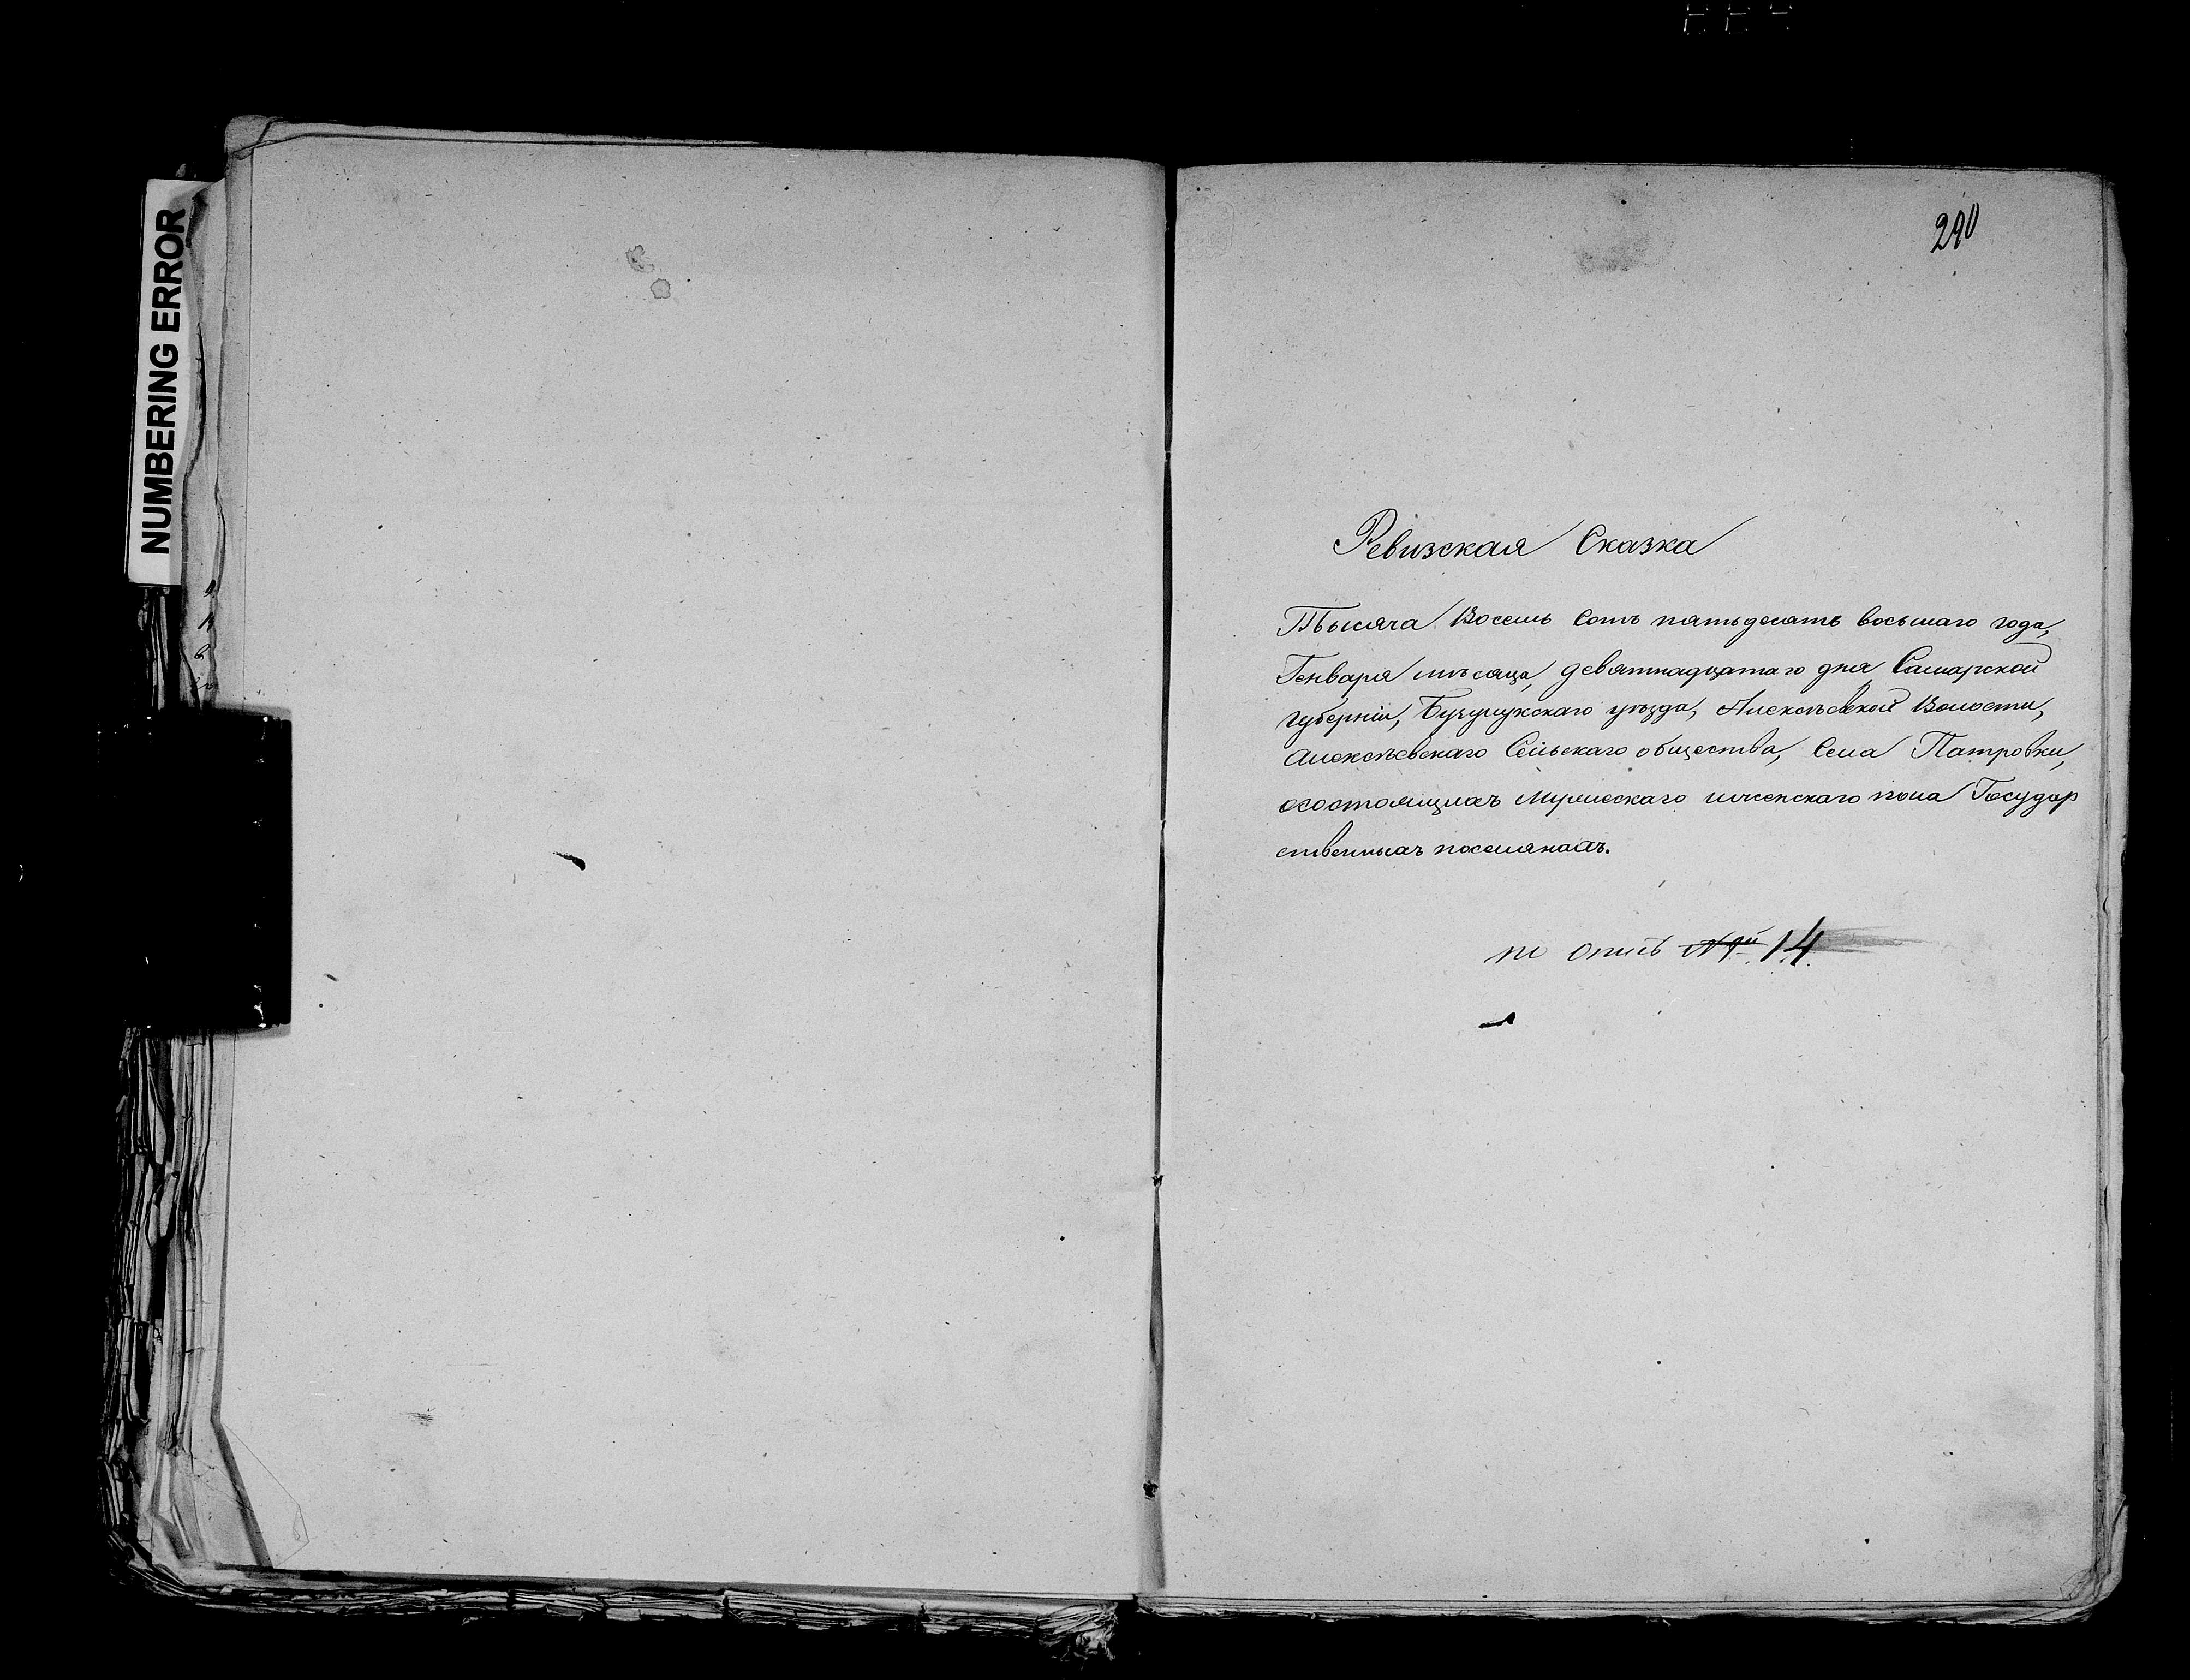 NUMBERING ERROR
290
Ревизская Сказка
Тысяча Восемь Сотъ пятьдесятъ восьмаго года,
Генваря мѣсяца, девятнадцатаго дня Самарской
губерніи, Бузулукскаго уѣзда, Алексѣевской Волости,
Алексѣевскаго Сельскаго общества, Села Патровки,
осостоящихъ мужескаго иженскаго пола Государ
ственныхъ поселянахъ.
по описѣ 14